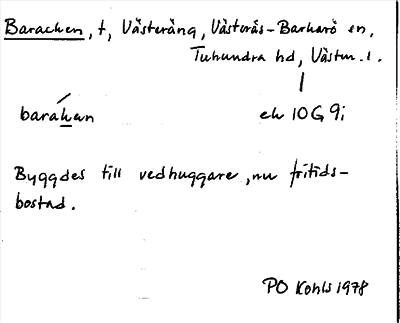 Baracken, t, Västeräng, Västerås-Barkarö sn,
Tuhundra hd, Västm. l.
barakan
ek 10G 9i
Byggdes till vedhuggare, nu fritids-
bostad.
PO Kohls 1978